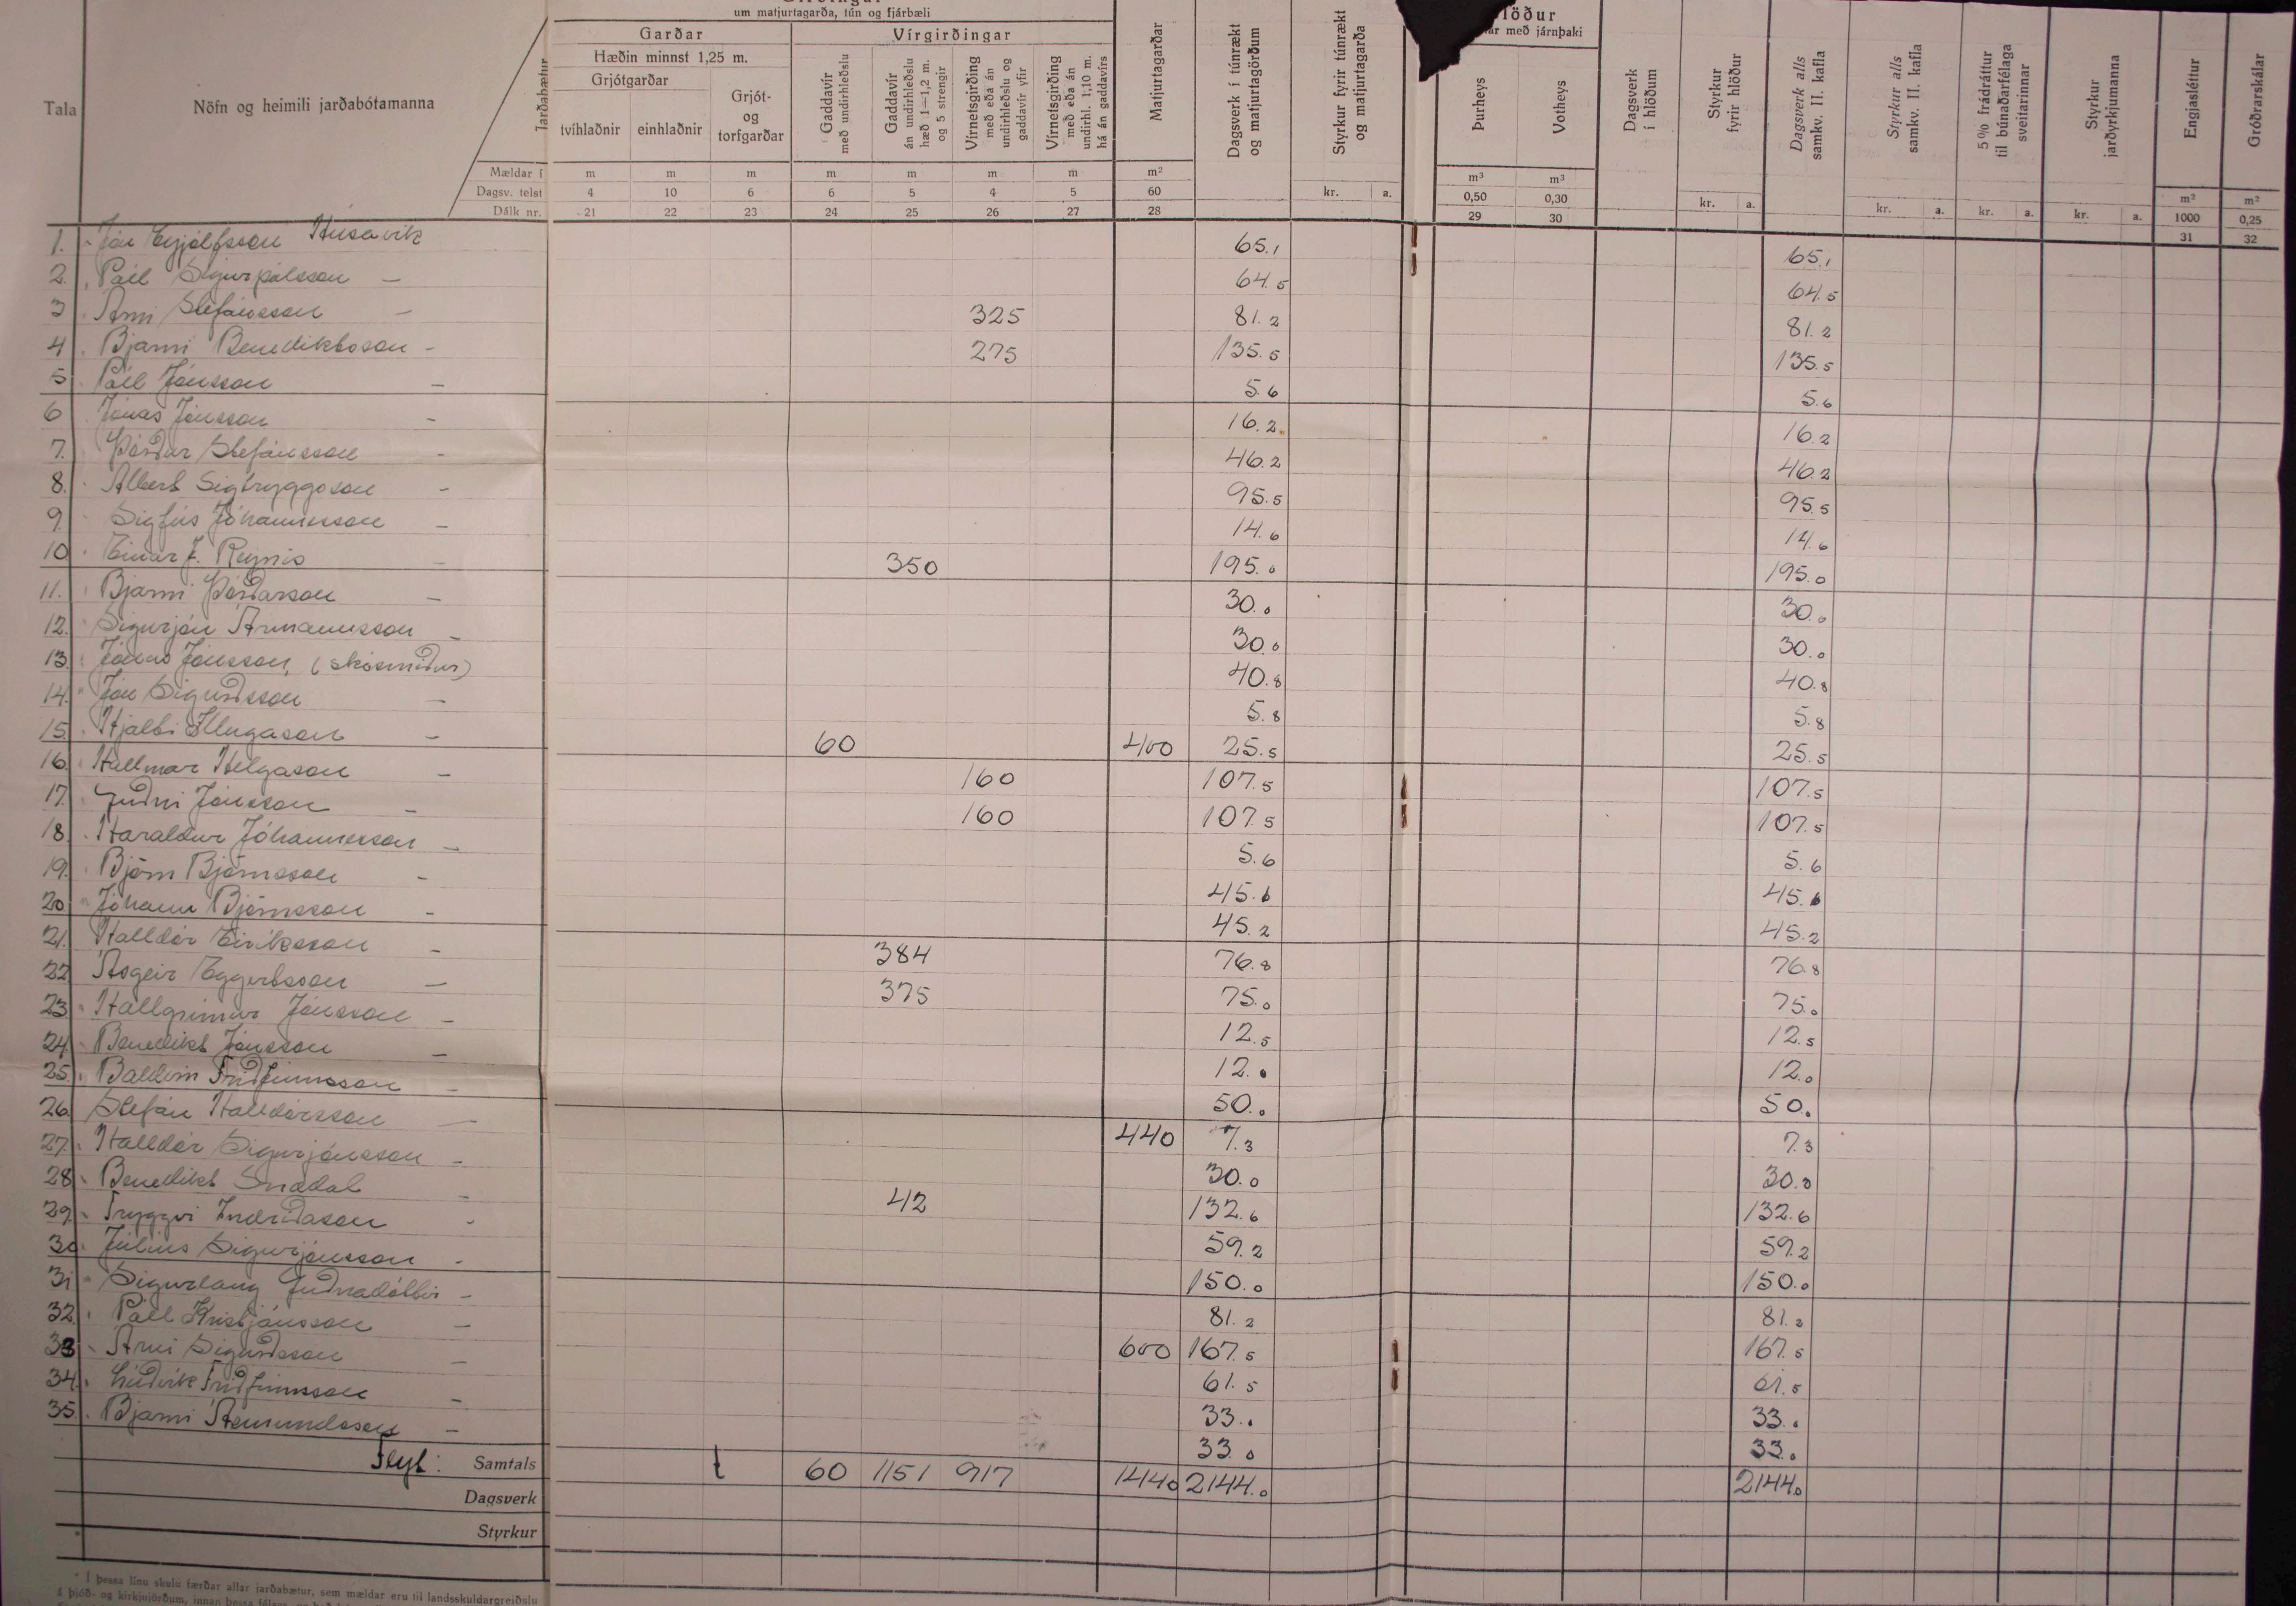 um matjurtagarða, tún og fjárbæli
Tala
Nöfn og heimili jarðabótamanna
Jarðabætur
Mældar í
Dagsv. telst
Dálk nr.
Garðar
Hæðin minnst 1,25 m.
Grjótgarðar
tvíhlaðnir m 4 21
einhlaðnir m 10 22
Grjót- og torfgarðar m 6 23
Vírgirðingar
Gaddavír með undirhleðslu m 6 24
Gaddavír án undirhleðslu hæð 1—1,2 m. og 5 strengir m 5 25
Vírnetsgirðing með eða án undirhleðslu og gaddavír yfir m 4 26
Vírnetsgirðing með eða án undirhl. 1,10 m. há án gaddavírs m 5 27
Matjurtagarðar m² 60 28
Dagsverk í túnrækt og matjurtagörðum
Styrkur fyrir túnrækt og matjurtagarða kr. a.
löður
með járnþaki
Þurheys m³ 0,50 29
Votheys m³ 0,30 30
Dagsverk í hlöðum
Styrkur fyrir hlöður kr. a.
Dagsverk alls samkv. II. kafla
Styrkur alls samkv. II. kafla kr. a.
5% frádráttur til búnaðarfélaga sveitarinnar kr. a.
Styrkur jarðyrkjumanna kr. a.
Engjasléttur m² 1000 31
Gróðrarskálar m² 0,25 32
1. Jón Eyjólfsson Húsavík 65.1 65.1
2. Páll Sigurpálsson — 64.5 64.5
3 Árni Stefánsson — 325 81.2 81.2
4 Bjarni Benediktsson - 275 135.5 135.5
5 Páll Jónsson — 5.6 5.6
6 Jónas Jónsson - 16.2 16.2
7. Þórður Stefánsson - 46.2 46.2
8. Albert Sigtryggsson - 95.5 95.5
9. Sigfús Jóhannesson — 14.6 14.6
10 Einar J. Reynis — 350 195.0 195.0
11. Bjarni Þórðarson — 30.0 30.0
12. Sigurjón Ármannsson — 30.0 30.0
13. Jónas Jónsson, (skósmiður) 40.8 40.8
14. Jón Sigurðsson — 5.8 5.8
15. Hjalti Illugason — 60 400 25.5 25.5
16. Hallmar Helgason — 160 107.5 107.5
17. Guðni Jónsson — 160 107.5 107.5
18. Haraldur Jóhannesson — 5.6 5.6
19. Björn Björnsson - 45.6 45.6
20 Jóhann Björnsson - 45.2 45.2
21. Halldór Eiríksson — 384 76.8 76.8
22 Ásgeir Eggertsson — 375 75.0 75.0
23. Hallgrímur Jónsson — 12.5 12.5
24. Benedikt Jónsson — 12.0 12.0
25. Baldvin Friðfinnsson — 50.0 50.
26. Stefán Halldórsson — 440 7.3 7.3
27. Halldór Sigurjónsson - 30.0 30.0
28. Benedikt Snædal — 42 132.6 132.6
29. Tryggvi Indriðason - 59.2 59.2
30. Júlíus Sigurjónsson - 150.0 150.0
31 Sigurlaug Guðnadóttir - 81.2 81.2
32. Páll Kristjánsson — 600 167.5 167.5
33 Árni Sigurðsson — 61.5 61.5
34. Lúðvík Friðfinnsson — 33.0 33.0
35. Bjarni Ásmundsson — 33.0 33.0
Flyt: Samtals t 60 1151 917 1440 2144.0 2144.0
Dagsverk
Styrkur
* Í þessa línu skulu færðar allar jarðabætur, sem mældar eru til landsskuldargreiðslu
á þjóð- og kirkjujörðum, innan þessa